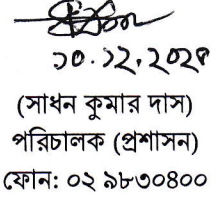 ১০.১২.২০২৪
(সাধন কুমার দাস)
পরিচালক (প্রশাসন)
ফোন: ০২ ৯৮৩০৪০০